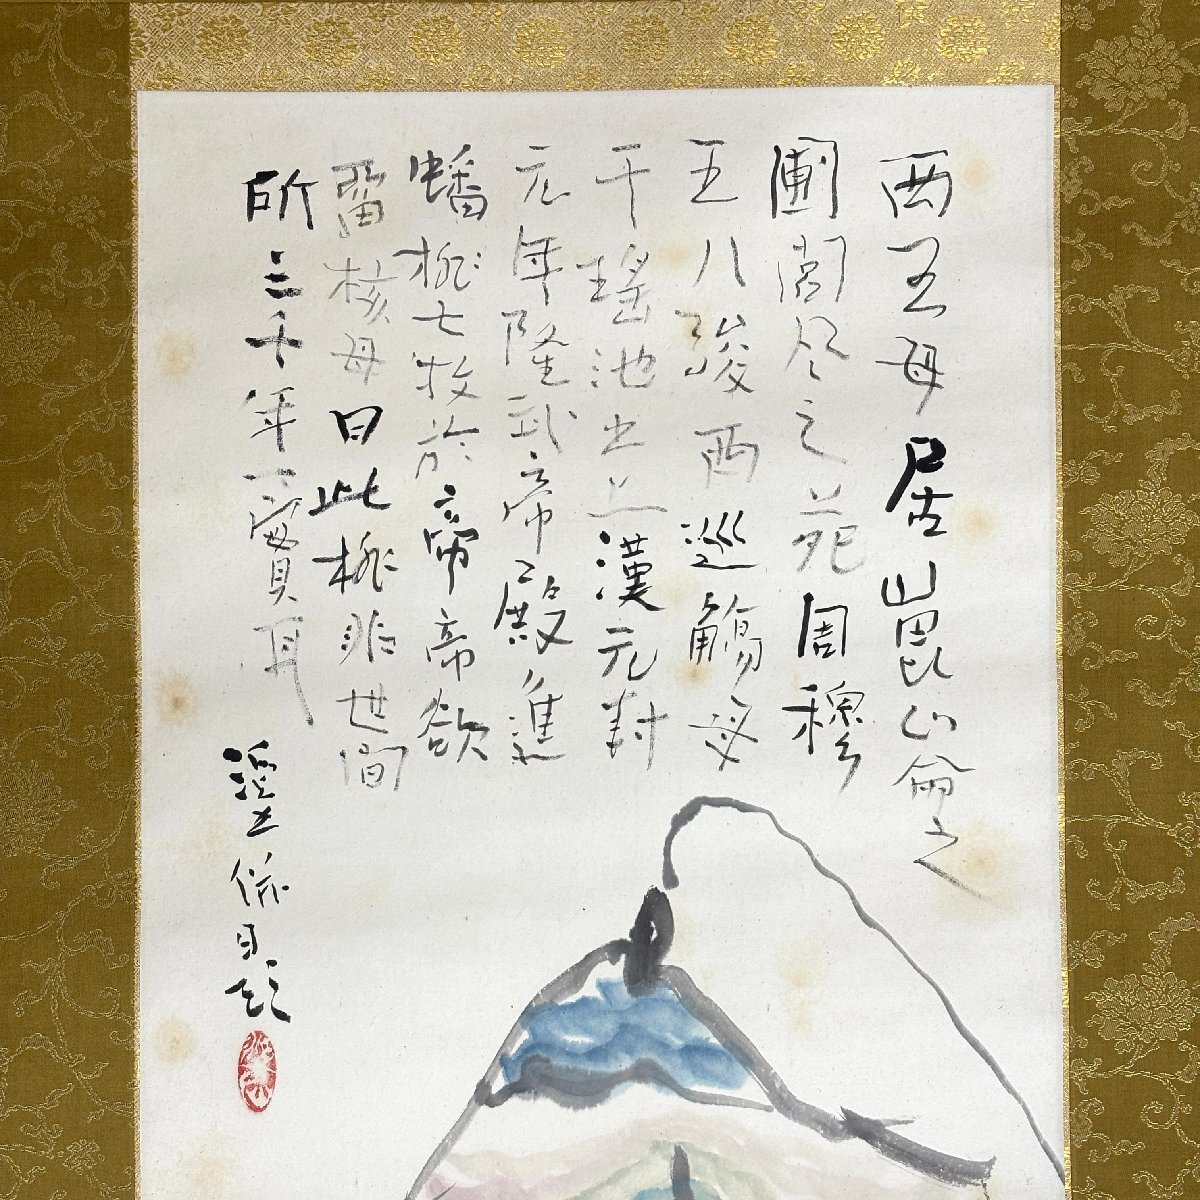 西王母居崑山崙之
圃閬風之苑周穆
王八駿西巡觴母
于瑤池之上漢元封
元年降武帝殿進
蟠桃七枚於帝帝欲
留核母曰此桃非世間
所三千年一實耳
自題